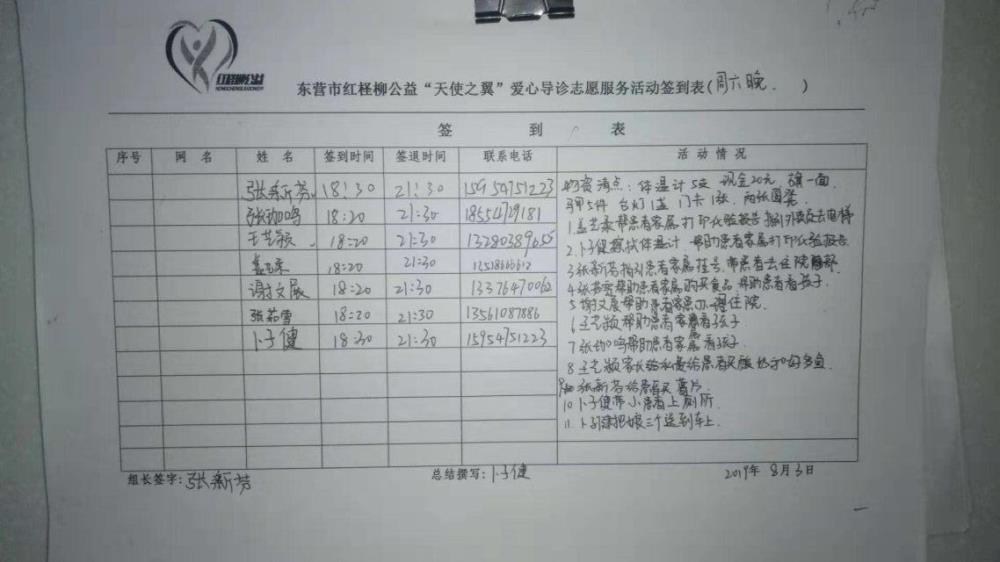 红柽柳公益
东营市红柽柳公益“天使之翼”爱心导诊志愿服务活动签到表(周六晚. )
签 到 表
序号 网 名 姓 名 签到时间 签退时间 联系电话 活 动 情 况
张新芳 18:30 21:30 15954751223
张珈鸣 18:20 21:30 18554729181
王艺颖 18:20 21:30
孟艺柔 18:20 21:30
谢文展 18:20 21:30 13376470062
张茹雪 18:20 21:30 13561087886
卜子健 18:30 21:30 15954751223
物资清点:体温计5支 现金20元 旗一面
马甲5件 台灯1盏 门卡1张 两张圆凳
1孟艺柔帮患者家属打印化验报告
2.卜子健擦拭体温计 帮助患者家属打印化验报告
3张新芳指引患者家属挂号,带患者去住院
4张茹雪帮助患者家属购买食品 帮助患者看孩子
5谢文展帮助患者家属办理住院
6王艺颖帮助患者家属看孩子
7张珈鸣帮助患者家属看孩子
8王艺颖
张新芳给患者买薯片
10卜子健带小患者上厕所
11.卜子健把 三个送到车上.
组长签字:张新芳 总结撰写:卜子健 2019年8月3日